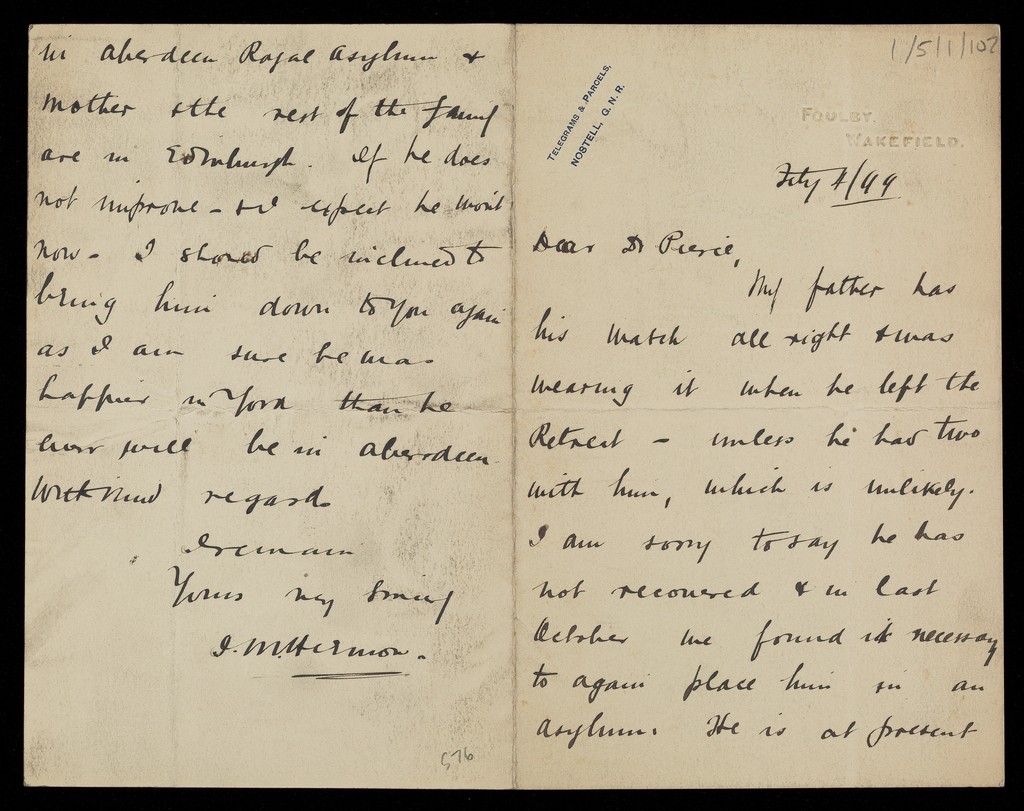 1/5/1/102
TELEGRAMS & PARCELS,
NOSTELL, G. N. R.
FOULBY,
WAKEFIELD.
Feby 4/99
Dear Dr Pierce,
My father has
his watch all right & was
wearing it when he left the
Retreat - unless he had two
with him, which is unlikely.
I am sorry to say he has
not recovered & in last
October we found it necessary
to again place him in an
asylum. He is at present
in Aberdeen Royal Asylum &
Mother & the rest of the family
are in Edinburgh. If he does
not improve - & I expect he won't
now - I should be inclined to
bring him down to you again
as I am sure he was
happier in York than he
ever will be in Aberdeen.
With kind regards
I remain
Yours very sincerely
576